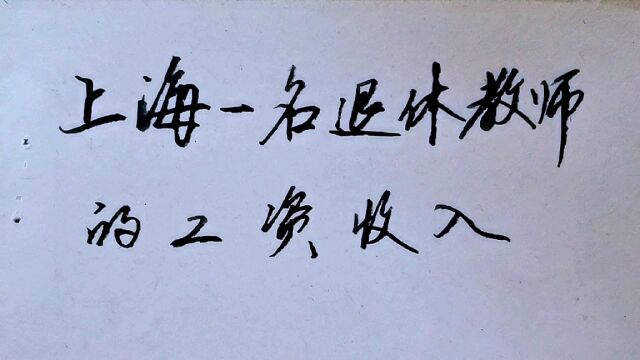 上海一名退休教师
的工资收入